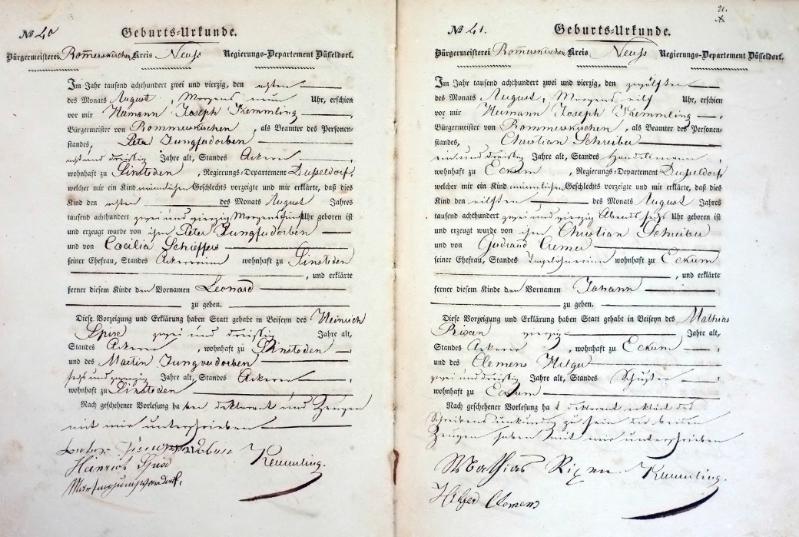 No 40
Geburts-Urkunde.
Bürgermeisterei Rommerskirchen Kreis Neuss Regierungs-Departement Düsseldorf.
Im Jahr tausend achthundert zwei und vierzig, den achten
des Monats August, Morgens neun Uhr, erschien
vor mir Hermann Joseph Kemmling
Bürgermeister von Rommerskirchen, als Beamter des Personen-
standes, Peter Jungverdorben
acht und dreißig Jahre alt, Standes Ackerer
wohnhaft zu Sinsteden, Regierungs-Departement Düsseldorf,
welcher mir ein Kind männlichen Geschlechts vorzeigte und mir erklärte, daß dies
Kind den achten des Monats August Jahres
tausend achthundert zwei und vierzig Morgens fünf Uhr geboren ist
und erzeugt wurde von ihm Peter Jungverdorben
und von Cäcilia Schieffers
seiner Ehefrau, Standes Ackererin wohnhaft zu Sinsteden
, und erklärte
ferner diesem Kinde den Vornamen Leonard
zu geben.
Diese Vorzeigung und Erklärung haben Statt gehabt in Beiseyn des Heinrich
zwei und dreißig Jahre alt,
Standes Ackerer, wohnhaft zu Sinsteden
und des Martin Jungverdorben
sechs und Jahre alt, Standes Ackerer
wohnhaft zu Sinsteden
Nach geschehener Vorlesung haben Deklarant und Zeugen
mit mir unterschrieben
Heinrich Kemmling.
No 41.
21.
Geburts-Urkunde.
Bürgermeisterei Rommerskirchen Kreis Neuss Regierungs-Departement Düsseldorf.
Im Jahr tausend achthundert zwei und vierzig, den zwölften
des Monats August, Morgens elf Uhr, erschien
vor mir Hermann Joseph Kemmling
Bürgermeister von Rommerskirchen, als Beamter des Personen-
standes, Christian Schreiber
ein und dreißig Jahre alt, Standes Handelsmann
wohnhaft zu Eckum, Regierungs-Departement Düsseldorf
welcher mir ein Kind männlichen Geschlechts vorzeigte und mir erklärte, daß dies
Kind den eilften des Monats August Jahres
tausend achthundert zwei und vierzig Abends sechs Uhr geboren ist
und erzeugt wurde von ihm Christian Schreiber
und von Cremer
seiner Ehefrau, Standes Tagelöhnerin wohnhaft zu Eckum
, und erklärte
ferner diesem Kinde den Vornamen Johann
zu geben.
Diese Vorzeigung und Erklärung haben Statt gehabt in Beiseyn des Mathias
vierzig Jahre alt,
Standes Ackerer, wohnhaft zu Eckum
und des Clemens Hilger
zwei und dreißig Jahre alt, Standes Schuster
wohnhaft zu Eckum
Nach geschehener Vorlesung hat Deklarant erklärt des
Schreibens unkundig zu sein die beiden
Zeugen haben mit mir unterschrieben
Mathias Kemmling.
Hilger Clemens